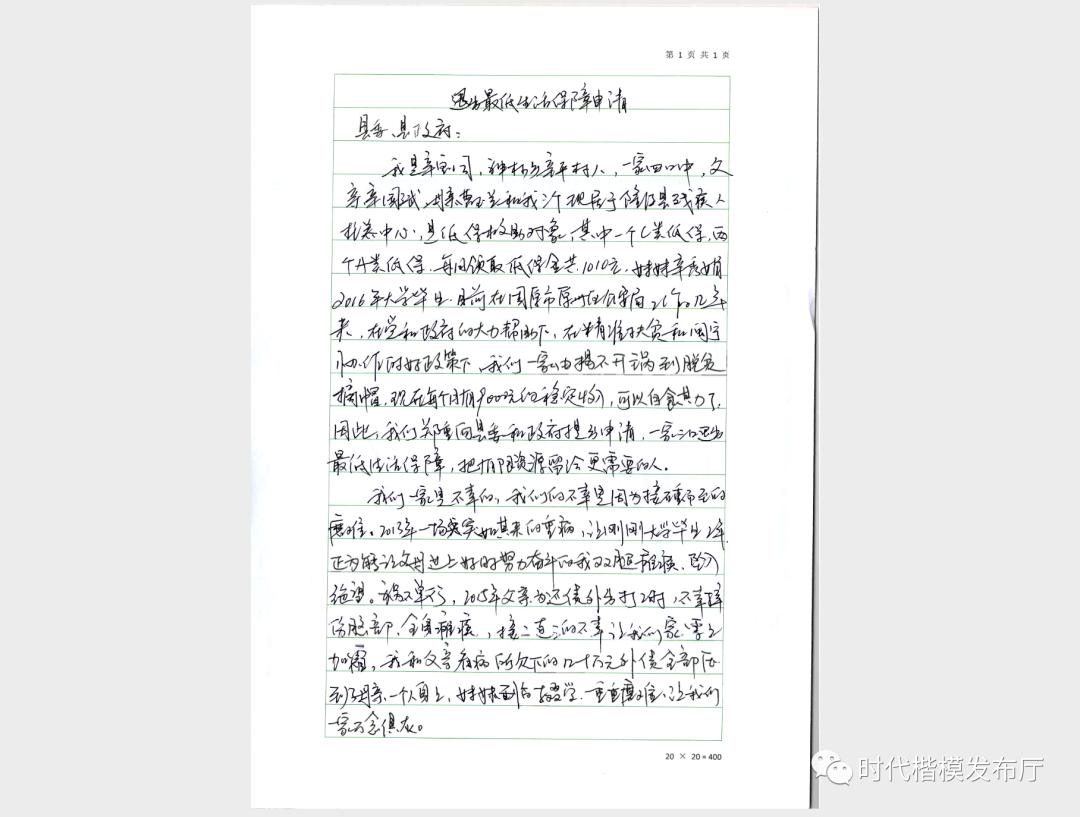 第 1 页 共 1 页
退出最低生活保障申请
县委、县政府：
我是辛宝同，神林乡辛平村人，一家四口中，父
亲辛国斌，母亲和我三个现居于隆德县残疾人
托养中心，是低保救助对象，其中一个C类低保，两
个A类低保，每月领取低保金共1010元，妹妹辛娟
2016年大学毕业，目前在固原市原州区公安局工作。几年
来，在党和政府的大力帮助下，在精准扶贫和闽宁
协作的好政策下，我们一家由揭不开锅到脱贫
摘帽，现在每个月有9000元的稳定收入，可以自食其力了，
因此，我们郑重向县委和政府提出申请，一家三口退出
最低生活保障，把有限资源留给更需要的人。
我们一家是不幸的，我们的不幸是因为接踵而至的
磨难。2013年一场突如其来的重病，让刚刚大学毕业2年
正为能让父母过上好日子努力奋斗的我双腿瘫痪，陷入
绝望。祸不单行，2015年父亲为还债外出打工时，不幸摔
伤腰部，全身瘫痪，接二连三的不幸让我们家雪上
加霜，我和父亲看病所欠下的几十万元外债全部压
到母亲一个人身上，妹妹面临辍学，重重磨难，让我们
一家万念俱灰。
20 × 20 = 400
时代楷模发布厅